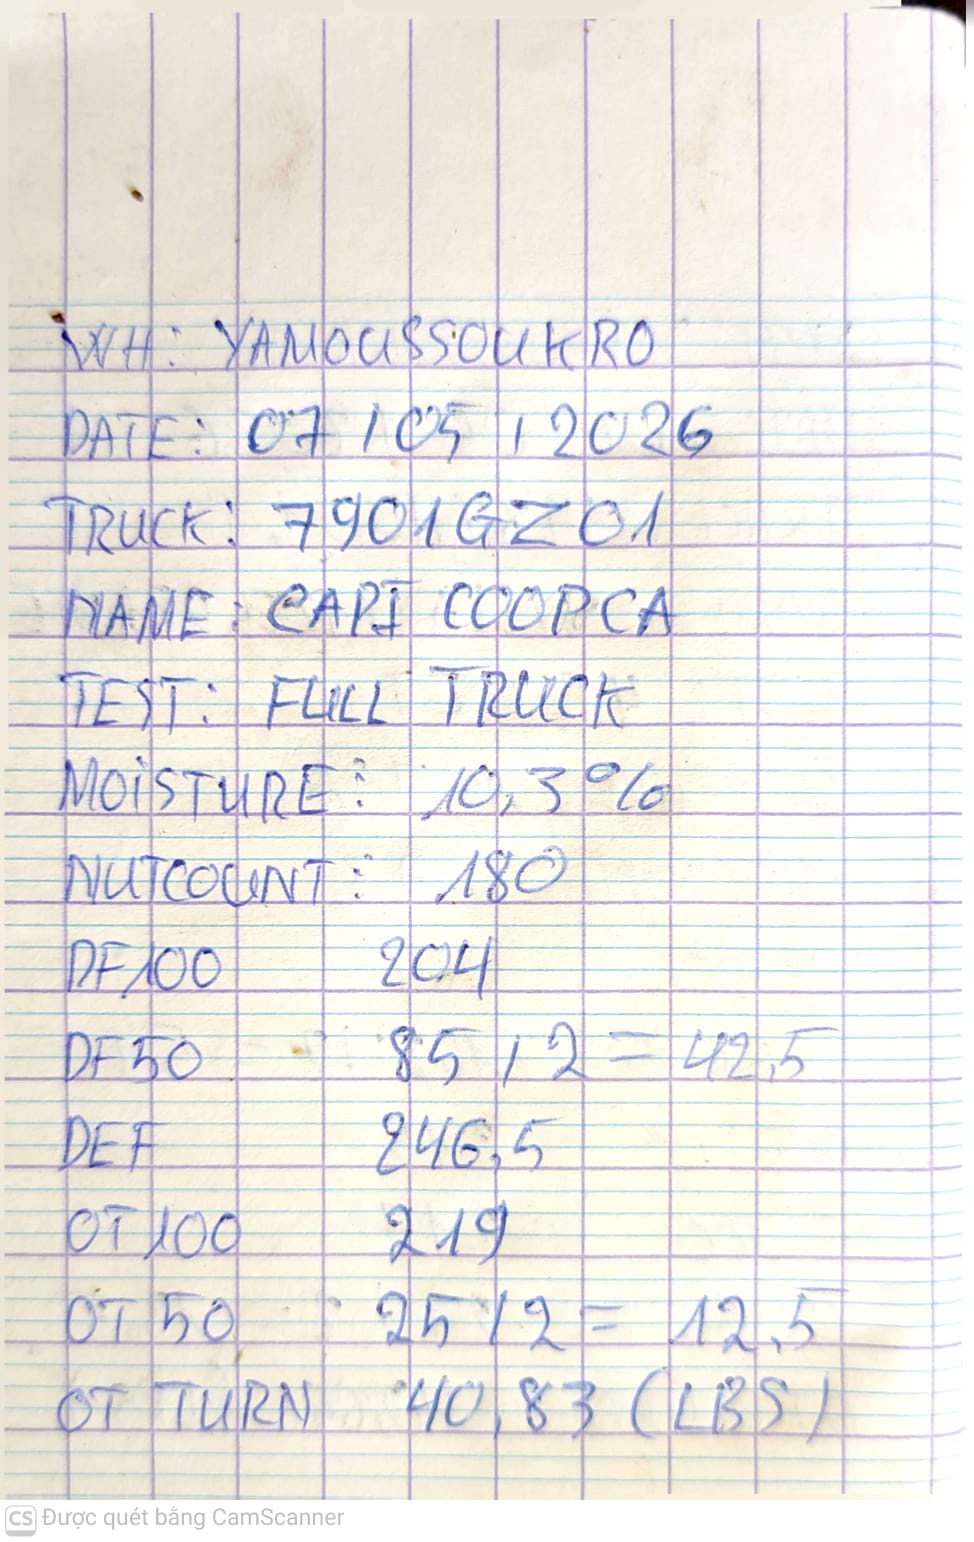 WH: YAMOUSSOUKRO
DATE: 07/05/2026
TRUCK: 7901GZ01
NAME: CAPI COOPCA
TEST: FULL TRUCK
MOiSTURE: 10,3%
NUTCOUNT: 180
DF100 204
DF50 85/2 = 42,5
DEF 246,5
OT100 219
OT50 25/2 = 12,5
OT TURN 40,83 (LBS)
CS Được quét bằng CamScanner